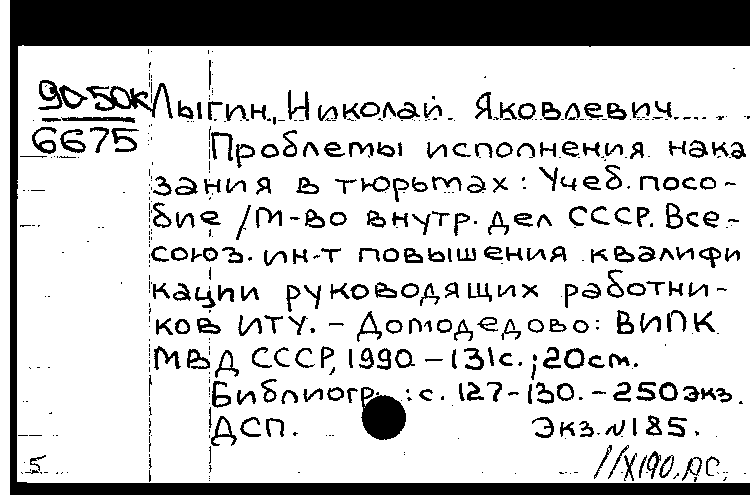 90-50к Лыгин, Николай Яковлевич
6675 Проблемы исполнения нака
зания в тюрьмах: Учеб. посо-
бие /М-во внутр. дел СССР. Все-
союз. ин-т повышения квалифи
кации руководящих работни-
ков ИТУ. - Домодедово: ВИПК
МВД СССР, 1990 - 131с.; 20см.
Библиогр.: с. 127-130. - 250экз.
ДСП. Экз. №185.
5